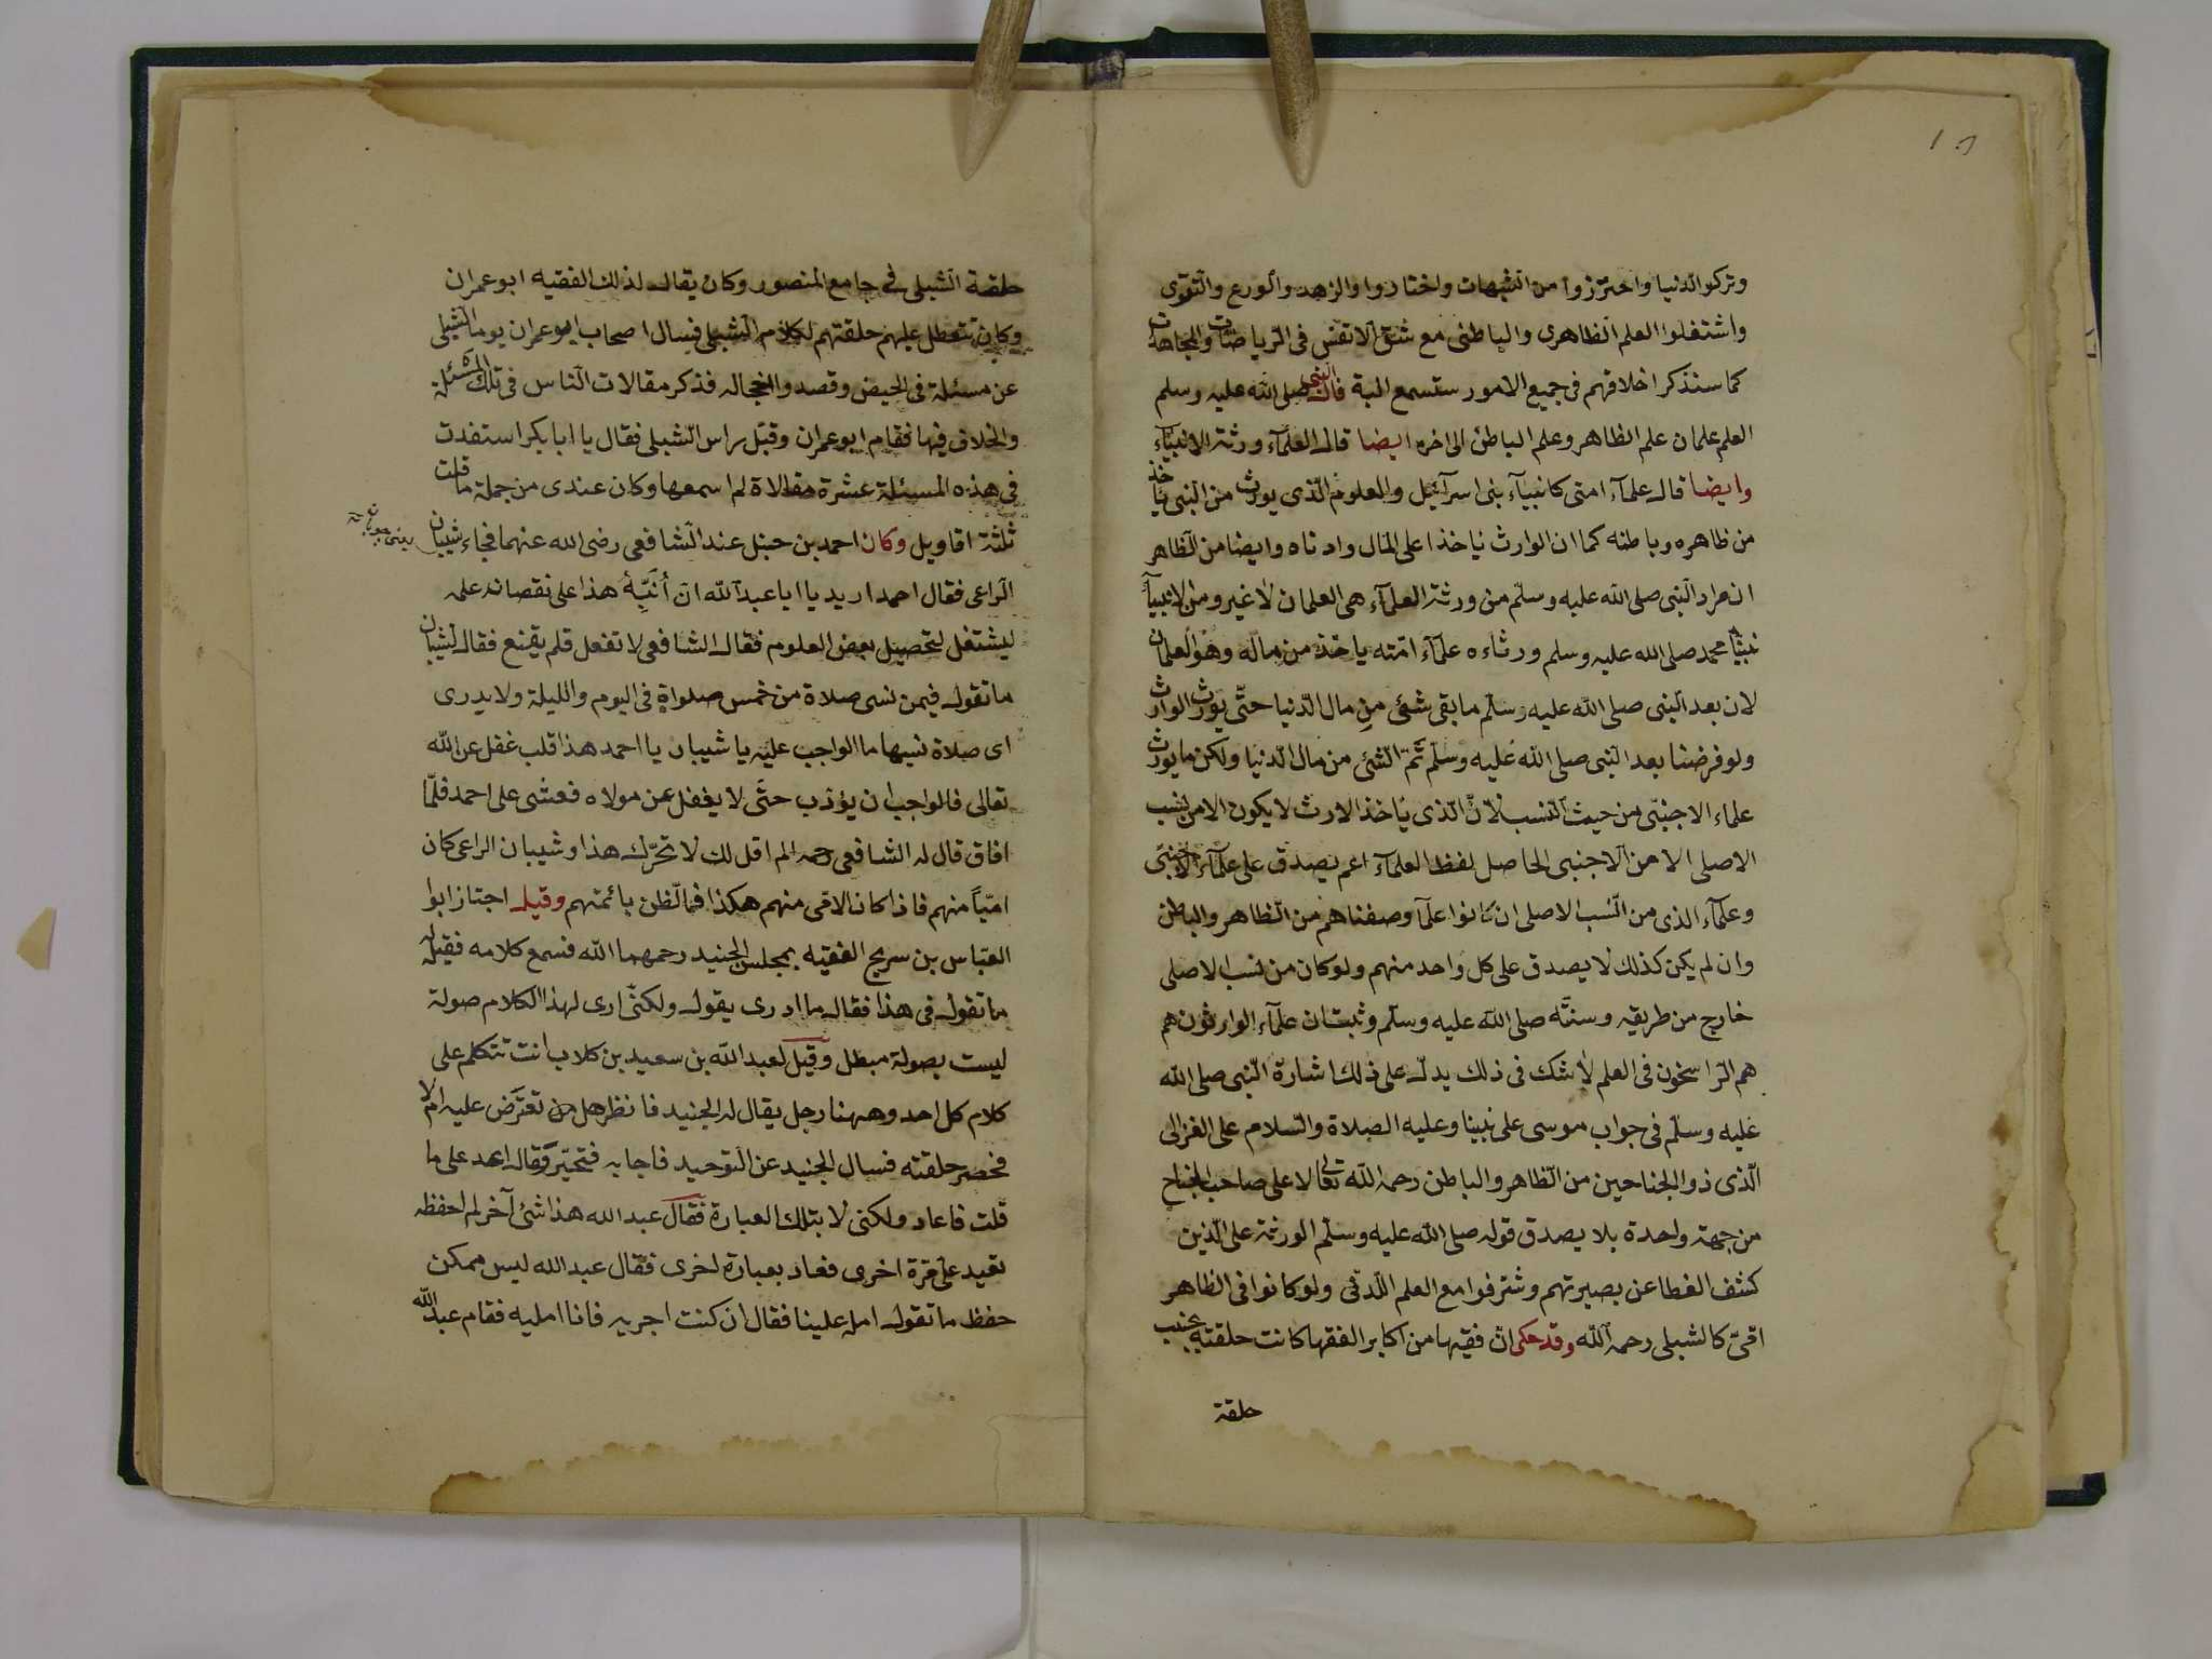 وتركوا الدنيا واحترزوا من الشبهات واختاروا والزهد والورع والتقوى
واشتغلوا العلم الظاهرى والباطنى مع شق الانفس فى الرياضات والمجاهدات
كما سنذكر اخلاقهم فى جميع الامور ستسمع البتة قال النبى صلى الله عليه وسلم
العلم علمان علم الظاهر وعلم الباطن الى اخره ايضا قال العلمآء ورثة الانبيآء
وايضا قال علمآء امتى كانبيآء بنى اسرآئيل والعلوم الذى يورث من النبى ياخذ
من ظاهره وباطنه كما ان الوارث ياخذ اعلى المال وادناه وايضا من الظاهر
ان مراد النبى صلى الله عليه وسلم من ورثة العلمآء هى العلمان لا غير ومن الانبيآء
نبينا محمد صلى الله عليه وسلم ورثاءه علمآء امته ياخذ من ماله وهو العلمان
لان بعد النبى صلى الله عليه وسلم ما بقى شئ من مال الدنيا حتى يورث الوارث
ولو فرضنا بعد النبى صلى الله عليه وسلم ثم الشئ من مال الدنيا ولكن ما يورث
علماء الاجنبى من حيث النسب لان الذى ياخذ الارث لا يكون الا من نسب
الاصلى الا من الاجنبى الحاصل لفظ العلمآء اعم يصدق على علمآء الاجنبى
وعلمآء الذى من النسب الاصلى ان كانوا علمآ وصفناهم من الظاهر والباطن
وان لم يكن كذلك لا يصدق على كل واحد منهم ولو كان من نسب الاصلى
خارج من طريقه وسنته صلى الله عليه وسلم وثبت ان علمآء الوارثون هم
هم الراسخون فى العلم لا شك فى ذلك يدل على ذلك اشارة النبى صلى الله
عليه وسلم فى جواب موسى على نبينا وعليه الصلاة والسلام على الغزالى
الذى ذو الجناحين من الظاهر والباطن رحمه الله تعالى لا على صاحب الجناح
من جهة واحدة بلا يصدق قوله صلى الله عليه وسلم الورثة على الذين
كشف الغطا عن بصيرتهم وشرفوا مع العلم اللدنى ولو كانوا فى الظاهر
امّى كالشبلى رحمه الله وقد حكى ان فقيها من اكابر الفقها كانت حلقته بجنب
حلقة
حلقة الشبلى فى جامع المنصور وكان يقال لذلك الفقيه ابو عمران
وكان تتعطل عليهم حلقتهم لكلام الشبلى فيسال اصحاب ابو عمران يوما الشبلى
عن مسئلة فى الحيض وقصدوا انخجاله فذكر مقالات الناس فى تلك المسئلة
والخلاف فيها فقام ابو عمران وقبّل راس الشبلى فقال يا ابا بكر استفدت
فى هذه المسئلة عشرة مقالاة لم اسمعها وكان عندى من جملة ما قلت
ثلثة اقاويل وكان احمد بن حنبل عند الشافعى رضى الله عنهما فجاء شيبان
الراعى فقال احمد اريد يا ابا عبد الله ان أُنَبِّهُ هذا على نقصان علمه
ليشتغل لتحصيل بعض العلوم فقال الشافعى لا تفعل فلم يقنع فقال لشيبان
ما تقول فيمن نسى صلاة من خمس صلواة فى اليوم والليلة ولا يدرى
اى صلاة نسيها ما الواجب عليه يا شيبان يا احمد هذا قلب غفل عن الله
تعالى فالواجب ان يؤذب حتى لا يغفل عن مولاه فغشى على احمد فلمّا
افاق قال له الشافعى رحمه الم اقل لك لا تحرّك هذا وشيبان الراعى كان
امّيّاً منهم فاذا كان الامى منهم هكذا فما الظن بائمتهم وقيل اجتاز ابوا
العباس بن سريج الفقيه بمجلس الجنيد رحمهما الله فسمع كلامه فقيل له
ما تقول فى هذا فقال ما ادرى يقول ولكنى ارى لهذا الكلام صولة
ليست بصولة مبطل وقيل لعبد الله بن سعيد بن كلاب انت تتكلم على
كلام كل احد وههنا رجل يقال له الجنيد فانظر هل من تعترض عليه ام لا
فحضر حلقته فسال الجنيد عن التوحيد فاجابه فتحيّر وقال اعد على ما
قلت فاعاد ولكنى لا بتلك العبارة فقال عبد الله هذا شئ آخر لم احفظه
تعيد على مرة اخرى فعاد بعبارة اخرى فقال عبد الله ليس ممكن
حفظ ما تقول امله علينا فقال ان كنت اجريه فانا امليه فقام عبد الله